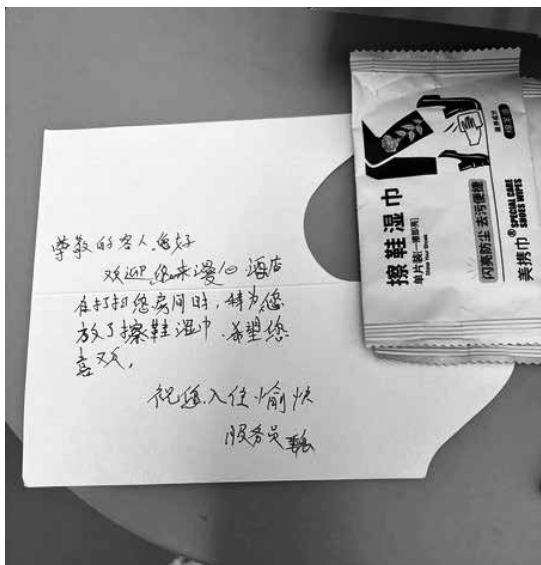 尊敬的客人.您好
欢迎您来漫心酒店
在打扫您房间时,特为您
放了擦鞋湿巾.希望您
喜欢.
祝您入住愉快
服务员
擦鞋湿巾
单片装(一擦即亮)
闪亮防尘 去污便捷
美携巾®SPECIAL CARE
SHOES WIPES